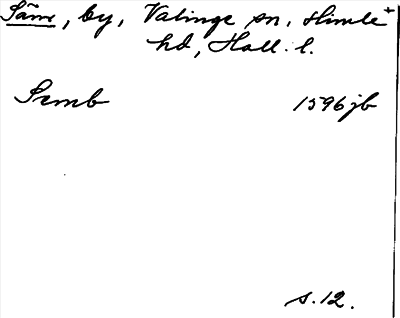 Säm, by, Valinge sn, Himle
hd, Hall. l.
Semb 1596 jb
s. 12.